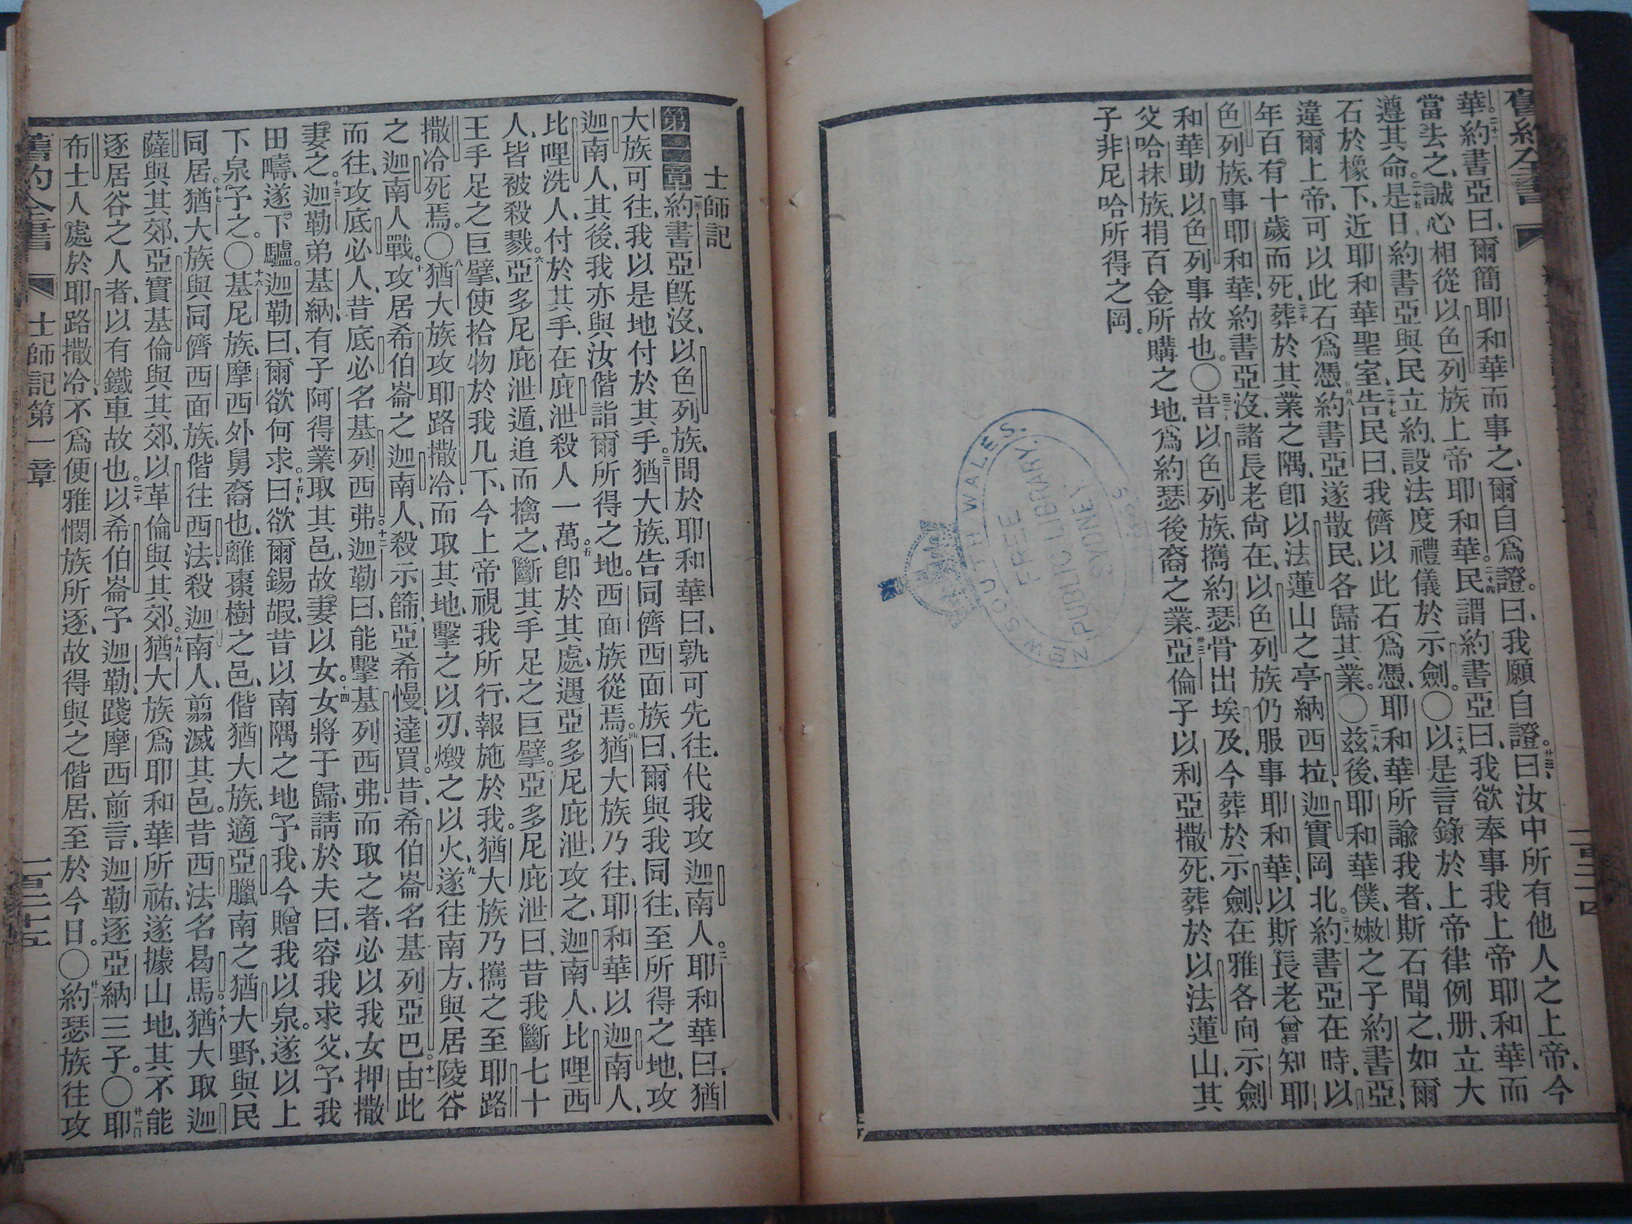 舊約全書
華約書亞曰爾簡耶和華而事之爾自爲證曰我願自證曰汝中所有他人之上帝今
當去之誠心相從以色列族上帝耶和華民謂約書亞曰我欲奉事我上帝耶和華而
遵其命是日約書亞與民立約設法度禮儀於示劍〇以是言錄於上帝律例册立大
石於橡下近耶和華聖室告民曰我儕以此石爲憑耶和華所諭我者斯石聞之如爾
違爾上帝可以此石爲憑約書亞遂散民各歸其業〇兹後耶和華僕嫩之子約書亞
年百有十歲而死葬於其業之隅卽以法蓮山之亭納西拉迦實岡北約書亞在時以
色列族事耶和華約書亞沒諸長老尙在以色列族仍服事耶和華以斯長老曾知耶
和華助以色列事故也〇昔以色列族攜約瑟骨出埃及今葬於示劍在雅各向示劍
父哈抹族捐百金所購之地爲約瑟後裔之業亞倫子以利亞撒死葬於以法蓮山其
子非尼哈所得之岡
一百三十四
NEW SOUTH WALES.
FREE
PUBLIC LIBRARY.
SYDNEY
士師記
第一章約書亞旣沒以色列族問於耶和華曰孰可先往代我攻迦南人耶和華曰猶
大族可往我以是地付於其手猶大族告同儕西面族曰爾與我同往至所得之地攻
迦南人其後我亦與汝偕詣爾所得之地西面族從焉猶大族乃往耶和華以迦南人
比哩洗人付於其手在庇泄殺人一萬卽於其處遇亞多尼庇泄攻之迦南人比哩西
人皆被殺戮亞多尼庇泄遁追而擒之斷其手足之巨擘亞多尼庇泄曰昔我斷七十
王手足之巨擘使拾物於我几下今上帝視我所行報施於我猶大族乃攜之至耶路
撒冷死焉〇猶大族攻耶路撒冷而取其地擊之以刃燬之以火遂往南方與居陵谷
之迦南人戰攻居希伯崙之迦南人殺示篩亞希慢達買昔希伯崙名基列亞巴由此
而往攻底必人昔底必名基列西弗迦勒曰能擊基列西弗而取之者必以我女押撒
妻之迦勒弟基納有子阿得業取其邑故妻以女女將于歸請於夫曰容我求父予我
田疇遂下驢迦勒曰爾欲何求曰欲爾錫嘏昔以南隅之地予我今贈我以泉遂以上
下泉予之〇基尼族摩西外舅裔也離棗樹之邑偕猶大族適亞臘南之猶大野與民
同居猶大族與同儕西面族偕往西法殺迦南人翦滅其邑昔西法名曷馬猶大取迦
薩與其郊亞實基倫與其郊以革倫與其郊猶大族爲耶和華所祐遂據山地其不能
逐居谷之人者以有鐵車故也以希伯崙予迦勒踐摩西前言迦勒逐亞納三子〇耶
布士人處於耶路撒冷不爲便雅憫族所逐故得與之偕居至於今日〇約瑟族往攻
舊約全書 士師記第一章 一百三十五